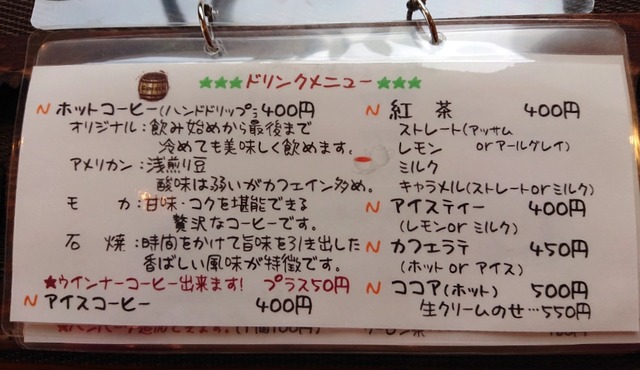 ★★★ドリンクメニュー★★★
ホットコーヒー(ハンドドリップ) 400円
オリジナル：飲み始めから最後まで
冷めても美味しく飲めます。
アメリカン：浅煎り豆
酸味は弱いがカフェイン多め。
モカ：甘味・コクを堪能できる
贅沢なコーヒーです。
石焼：時間をかけて旨味を引き出した
香ばしい風味が特徴です。
★ウインナーコーヒー出来ます! プラス50円
アイスコーヒー 400円
紅茶 400円
ストレート(アッサム
レモン orアールグレイ)
ミルク
キャラメル(ストレートorミルク)
アイスティー 400円
(レモンorミルク)
カフェラテ 450円
(ホットorアイス)
ココア(ホット) 500円
生クリームのせ…550円